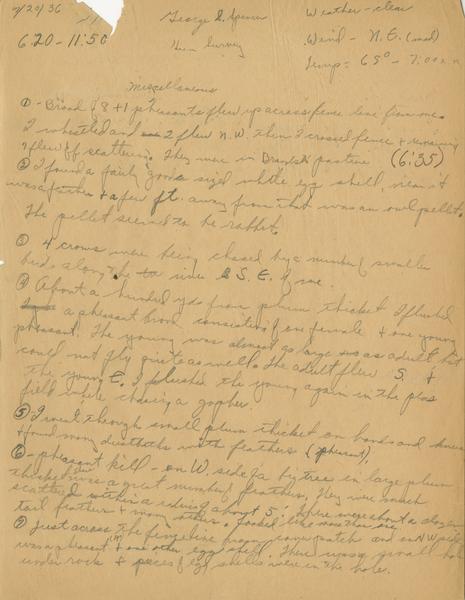 7/20/36 George S. Spencer Weather - clear
6:20 - 11:50 Hen Survey Wind - N.E. (mod)
Temp = 65° - 7:00 a.m
Miscellaneous
① - Brood (8 + 1 pheasants flew up across fence line from me.
I whistled and 2 flew N.W. then 3 crossed fence & remaining
flew off scattering. They were in pasture (6:35)
② I found a fairly good sized white egg shell, near it
was a feather & a few ft. away from that was an owl pellet.
The pellet seemed to be rabbit.
③ 4 crows were being chased by a number of smaller
birds along the river S.E. of me.
④ About a hundred yds from plum thicket I flushed
a pheasant brood consisting of one female & one young
pheasant. The young was almost as large as adult but
could not fly quite as well. The adult flew S. &
the young E. I flushed the young again in the
field while chasing a gopher.
⑤ - I went through small plum thicket on hands and knees
& found many with feathers (pheasant).
⑥ - pheasant kill - on W. side of a big tree in large plum
thicket was a great number of feathers. They were much
scattered within a radius of about 5'. There were about a dozen
tail feathers & many others. Looked like more than
⑦ Just across the fire line from corn patch and on N.W. side
was a pheasant & one other egg shell. There was a small hole
under rock & pieces of egg shells were in the hole.